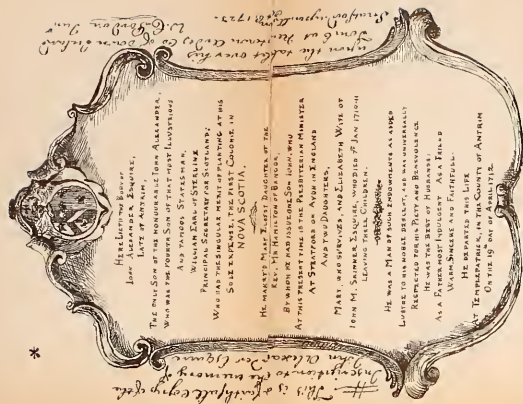 This is a faithfull copy of the
Inscription to the memory of
John Alexander Esquire
HERE LIETH THE BODY OF
JOHN ALEXANDER ESQUIRE,
LATE OF ANTRIM.
THE ONLY SON OF THE HONOURABLE JOHN ALEXANDER,
WHO WAS THE FOURTH SON OF THAT MOST ILLUSTRIOUS
AND FAMOUS STATESMAN,
WILLIAM EARL OF STERLINE
PRINCIPAL SECRETARY FOR SCOTLAND;
WHO HAD THE SINGULAR MERIT OF PLANTING AT HIS
SOLE EXPENSE, THE FIRST COLONIE IN
NOVA SCOTIA.
HE MARRYD MARY, ELDEST DAUGHTER OF THE
REV. MR HAMILTON OF BANGOR.
BY WHOM HE HAD ISSUE ONE SON JOHN, WHO
AT THIS PRESENT TIME IS THE PRESBITERIAN MINISTER
AT STRATFORD ON AVON IN ENGLAND
AND TWO DAUGHTERS,
MARY, WHO SURVIVES, AND ELIZABETH WIFE OF
JOHN M. SKINNER ESQUIRE, WHO DIED 7 JAN 1710-11
LEAVING THREE CHILDREN.
HE WAS A MAN OF SUCH ENDOWMENTS AS ADDED
LUSTRE TO HIS NOBLE DESCENT, AND WAS UNIVERSALLY
RESPECTED FOR HIS PIETY AND BENEVOLENCE
HE WAS THE BEST OF HUSBANDS:
AS A FATHER MOST INDULGENT. AS A FRIEND
WARM, SINCERE AND FAITHFULL.
HE DEPARTED THIS LIFE
AT TEMPLEPATRICK, IN THE COUNTY OF ANTRIM
ON THE 19 DAY OF APRIL 1712.
upon the tablet over his
Tomb at Newtown Ardes Co of Down Ireland
Stratford upon Avon 1723.
Gordon Junr